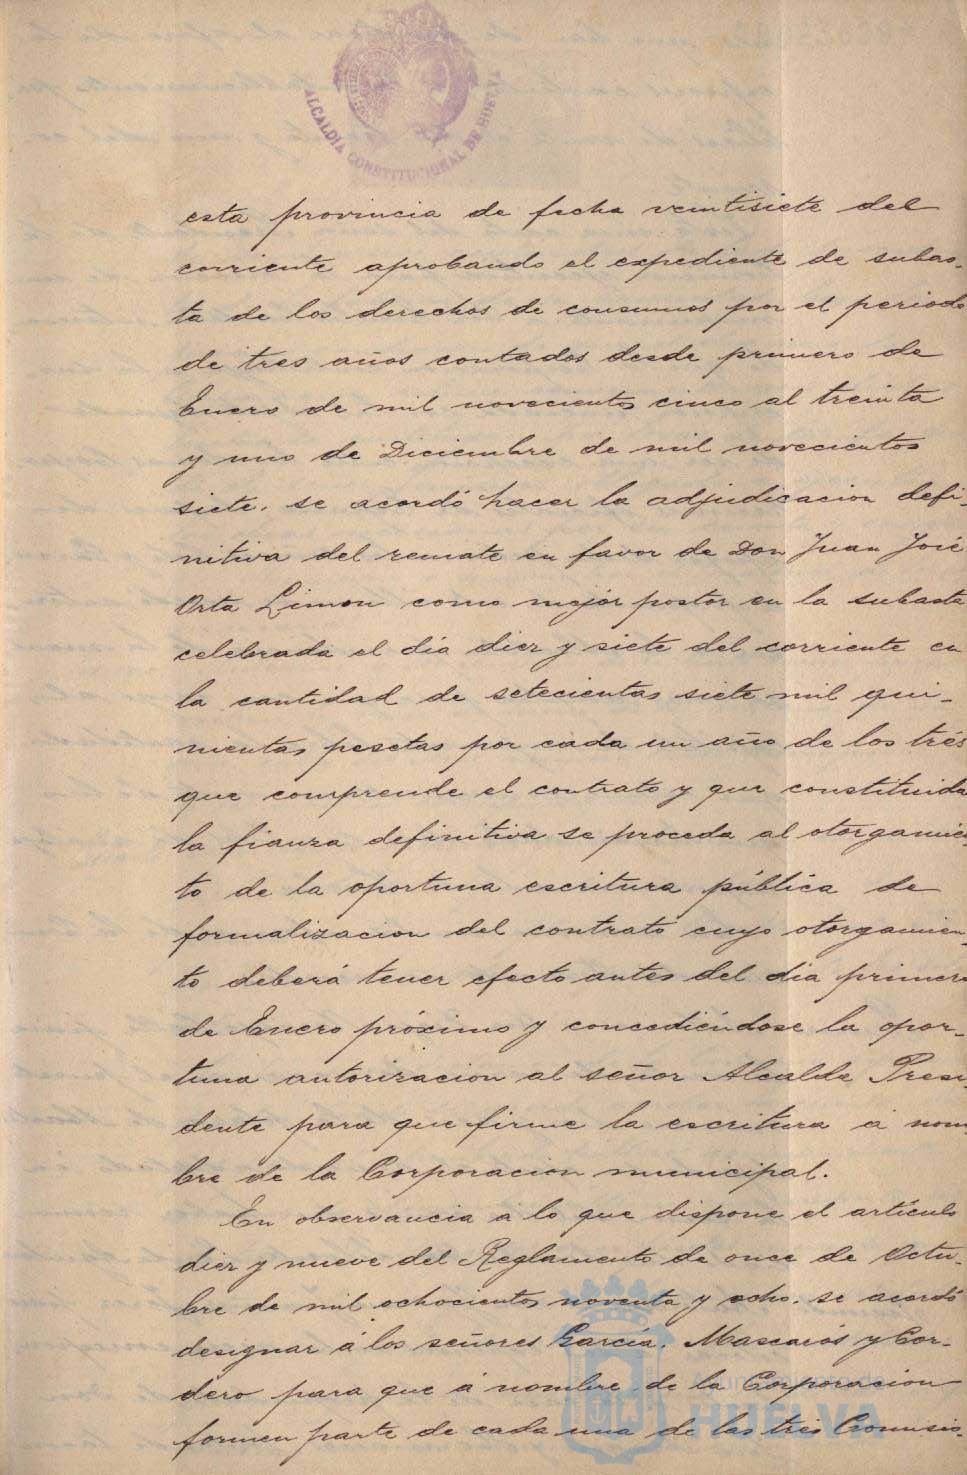 ALCALDÍA CONSTITUCIONAL DE HUELVA
esta provincia de fecha veintisiete del
corriente aprobando el expediente de subas-
ta de los derechos de consumos por el periodo
de tres años contados desde primero de
Enero de mil novecientos cinco al treinta
y uno de Diciembre de mil novecientos
siete, se acordó hacer la adjudicacion defi-
nitiva del remate en favor de Don Juan José
Orta Limon como mejor postor en la subasta
celebrada el dia diez y siete del corriente en
la cantidad de setecientas siete mil qui-
nientas pesetas por cada un año de los trés
que comprende el contrato y que constituida
la fianza definitiva se proceda al otorgamien-
to de la oportuna escritura pública de
formalizacion del contrato cuyo otorgamien-
to deberá tener efecto antes del dia primero
de Enero próximo y concediéndose la opor-
tuna autorizacion al señor Alcalde Presi-
dente para que firme la escritura á nom-
bre de la Corporacion municipal.
En observancia á lo que dispone el artículo
diez y nueve del Reglamento de once de Octu-
bre de mil ochocientos noventa y ocho, se acordó
designar á los señores García, Mascarós y Cor-
dero para que á nombre de la Corporacion
formen parte de cada una de las tres Comisio-
Ayuntamiento de
HUELVA